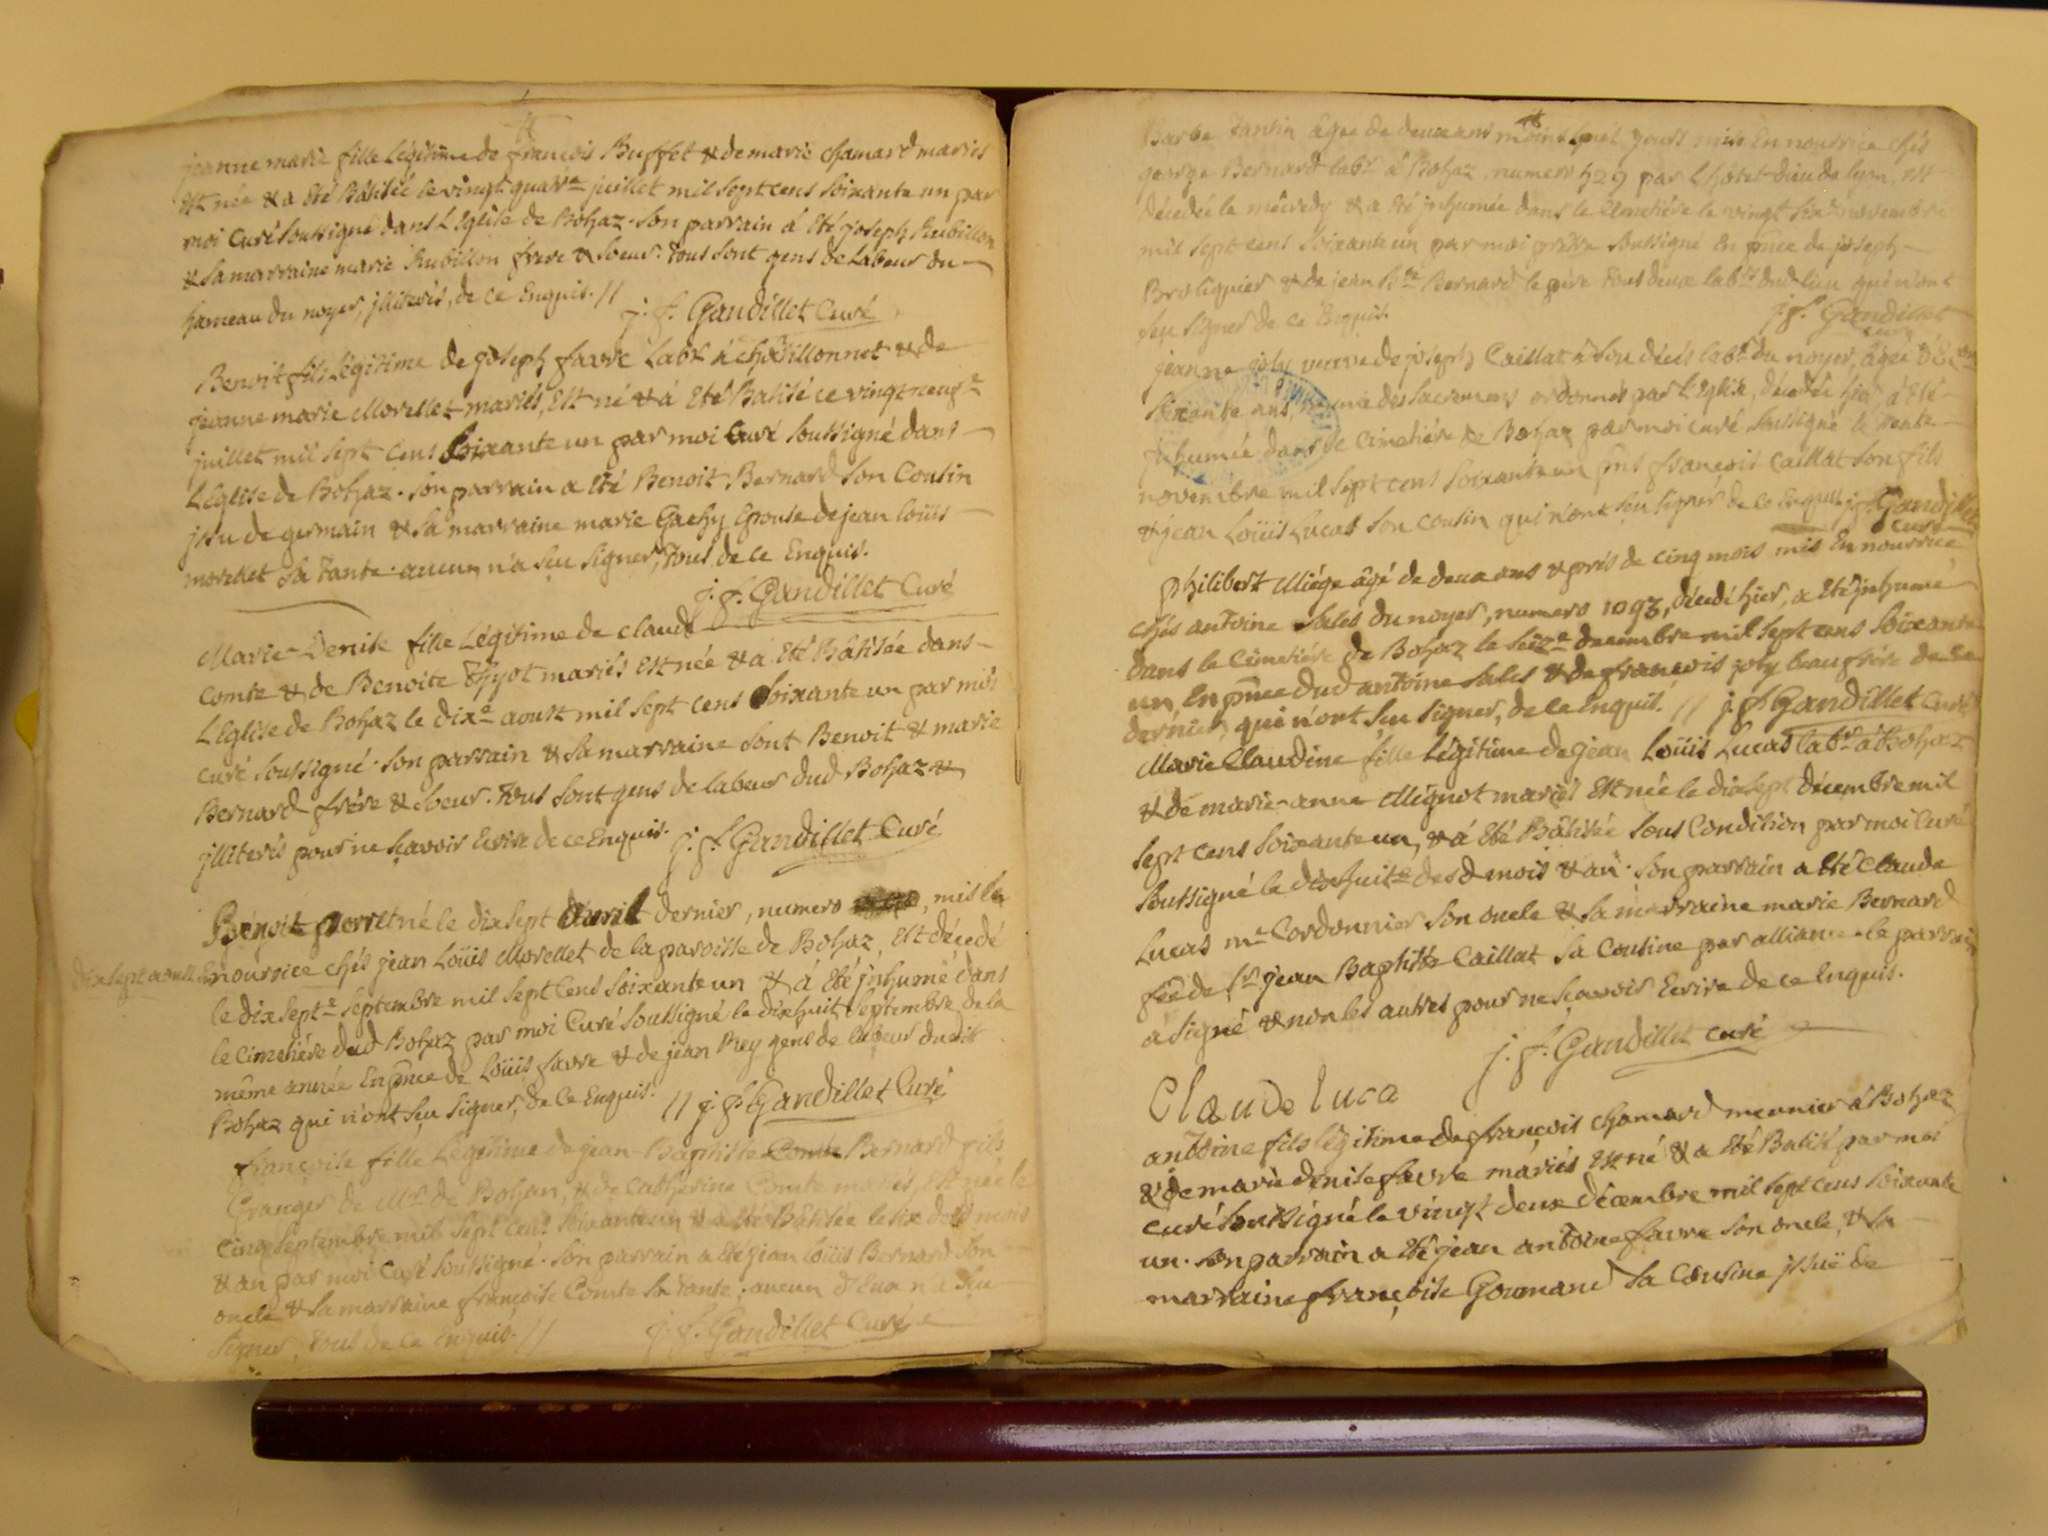 jeanne marie fille Légitime de francois Buffet & de marie chamard mariés
Est née & a Eté Bâtisée le vingt quatre juillet mil sept cens soixante un par
moi curé soussigné dans L'Eglise de Bohaz. son parrain a Eté joseph Rubillon
& sa marraine marie Rubillon frere & soeur. tous sont gens de labeur du
hameau du noyer, jlliterés, de ce Enquis. //
j. f. Gandillet Curé
Benoit fils Légitime de joseph favre Labr. à chatillonnet & de
jeanne marie Morellet mariés, Est né & á Eté Batisé ce vingt neuf
juillet mil sept Cens soixante un par moi Curé soussigné dans
L'Eglise de Bohaz. son parrain a Eté Benoit Bernard son Cousin
jssu de germain & sa marraine marie Gachy Epouse de jean loüis
morellet sa tante. aucun n'a sçu signer, tous de ce Enquis.
j. f. Gandillet Curé
Marie-Denise fille Légitime de claude
Comte & de Benoite Thyot mariés Est née & a Eté Bâtisée dans
L'Eglise de Bohaz le dixe aoust mil sept cens soixante un par moi
curé soussigné. son parrain & sa marraine sont Benoit & marie
Bernard frére & soeur. tous sont gens de labeur dud Bohaz &
jlliterés pour ne sçavoir Ecrire de ce Enquis. j. f. Gandillet Curé
Benoit né le dix sept d'avril dernier, numero , mis le
dix sept aoust En nourrice chés jean Loüis Morellet de la paroisse de Bohaz, Est décedé
le dix septe septembre mil sept Cens soixante un & á Eté jnhumé dans
le Cimetiére dud Bohaz par moi Curé soussigné le dixhuit septembre de la
même année En pnce de Loüis favre & de jean Rey gens de labeur dudit
Bohaz qui n'ont sçu signer, de Ce Enquis. // j. f. Gandillet Curé
françoise fille Légitime de jean-Baptiste Comte Bernard fils
Granger de Mr de Bohan, & de Catherine Comte mariés, Est née le
cinq septembre mil sept Cens soixante un & a Eté Bâtisée le six desd mois
& an par moi Curé soussigné. son parrain a Eté jean loüis Bernard son
oncle & sa marraine françoise Comte sa tante; aucun d'Eux n'a sçu
signer, tous de ce Enquis. // j. f. Gandillet Curé
Barbe Tantin âgée de deux ans moins huit jours mise En nourrice chés
george Bernard labr. à Bohaz, numero 429 par L'hôtel-dieu de lyon, Est
décedée le mécredy & a Eté jnhumée dans le Cimetiére le vingt six novembre
mil sept cens soixante un par moi prêtre soussigné En pnce de joseph
Broliquier & de jean Bte Bernard le pére tous deux labrs dud lieu qui n'ont
sçu signer de ce Enquis.
j. f. Gandillet
curé
jeanne joly veuve de joseph Caillat à son décés labr du noyer, âgée
soixante ans, munie des sacremens ordonnés par L'Eglise, décedée hier a Eté
jnhumée dans le Cimetiére de Bohaz par moi curé soussigné le trente
novembre mil sept cens soixante un pns françois Caillat son fils
& jean Loüis Lucas son cousin qui n'ont sçu signer de ce Enquis j. f. Gandillet
curé
philibert Miége âgé de deux ans & prés de cinq mois mis En nourrice
chés antoine Sales du noyer, numero 1093, décedé hier, a Eté jnhumé
dans le Cimetiére de Bohaz le seize decembre mil sept cens soixante
un, En pnce dud antoine Sales & de francois joly beaufrére de ce
dernier, qui n'ont sçu signer, de ce Enquis. // j. f. Gandillet Curé
Marie Claudine fille Légitime de jean Loüis Lucas labr à Bohaz
& de marie-anne Mignot mariés Est née le dix sept décembre mil
sept cens soixante un, & á Eté Bâtisée sous Condition par moi Curé
soussigné le dixhuite desd mois & an. son parrain a Eté Claude
Lucas me Cordonnier son oncle & sa marraine marie Bernard
fe de sr jean Baptiste Caillat sa Cousine par alliance. le parrain
a signé & non les autres pour ne sçavoir Ecrire de ce Enquis.
j. f. Gandillet curé
Claude luca
antoine fils légitime de françois chamard meunier à Bohaz
& de marie denise favre mariés Est né & a Eté Batisé par moi
curé soussigné le vingt deux décembre mil sept cens soixante
un. son parrain a Eté jean antoine favre son oncle, & sa
marraine françoise Goumand sa Cousine jssuë de